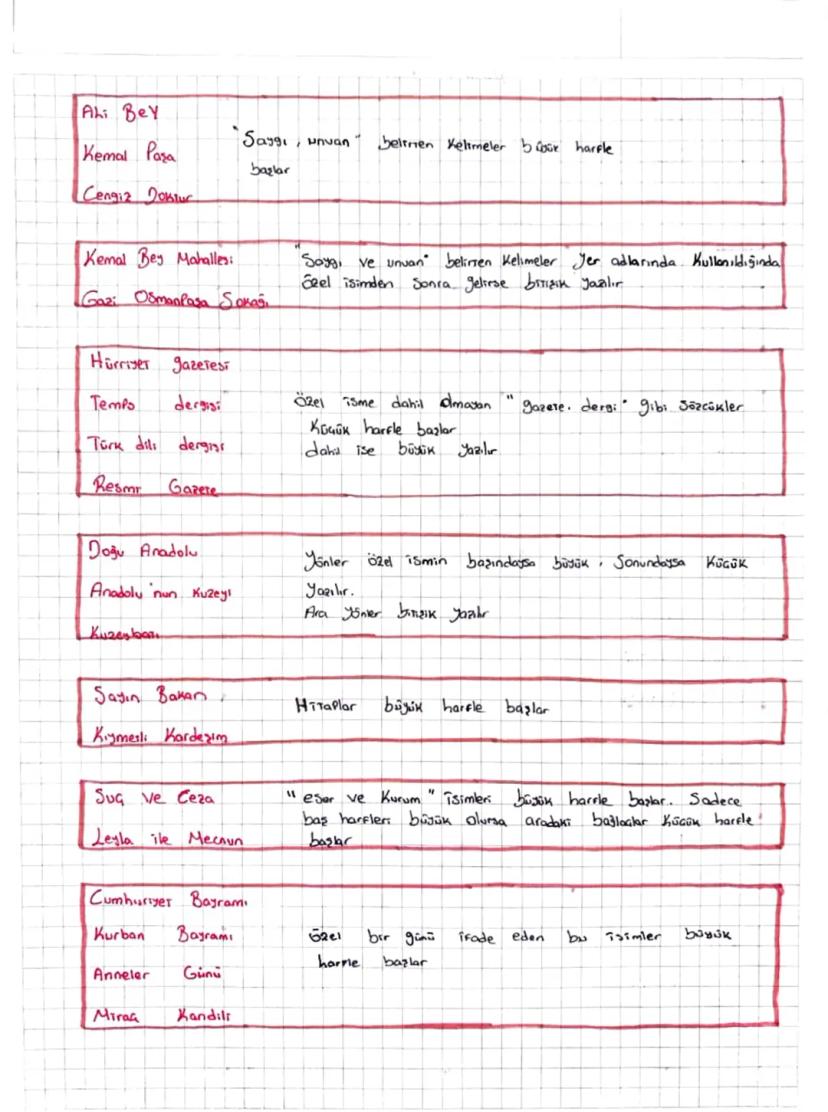 Ali Bey
Kemal Paşa
Cengiz Doktur
"Saygı, unvan" belirten kelimeler büyük harfle
başlar
Kemal Bey Mahallesi
Gazi OsmanPaşa Sokağı
"Saygı ve unvan" belirten kelimeler yer adlarında kullanıldığında
özel isimden sonra gelirse bitişik yazılır
Hürriyet gazetesi
Tempo dergisi
Türk dili dergisi
Resmi Gazete
özel isme dahil olmayan "gazete, dergi" gibi sözcükler
küçük harfle başlar
dahil ise büyük yazılır
Doğu Anadolu
Anadolu'nun kuzeyi
Kuzeybatı
Yönler özel ismin başındaysa büyük, sonundaysa küçük
yazılır.
Ara yönler bitişik yazılır
Sayın Bakan,
Kıymetli Kardeşim
Hitaplar büyük harfle başlar
Suç ve Ceza
Leyla ile Mecnun
"eser ve kurum" isimleri büyük harfle başlar. Sadece
baş harfleri büyük olursa aradaki bağlaçlar küçük harfle
başlar
Cumhuriyet Bayramı
Kurban Bayramı
Anneler Günü
Miraç Kandili
özel bir günü ifade eden bu isimler büyük
harfle başlar